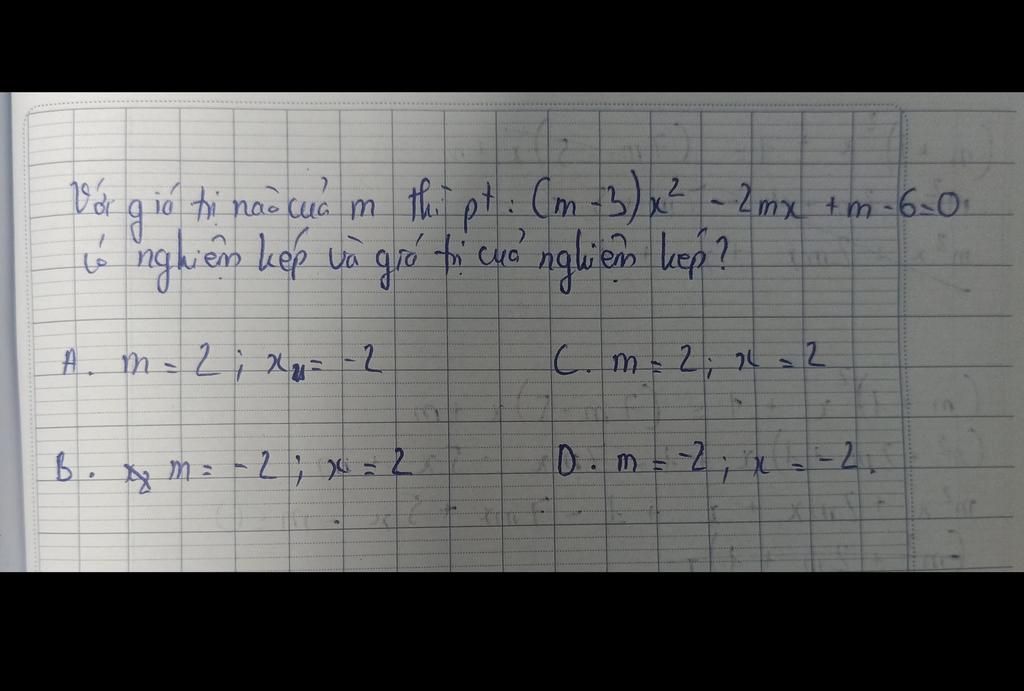 Với giá trị nào của m thì pt : (m-3)x² - 2mx + m - 6 = 0
có nghiệm kép và giá trị của nghiệm kép?
A. m = 2 ; x = -2
C. m = 2 ; x = 2
B. m = -2 ; x = 2
D. m = -2 ; x = -2.